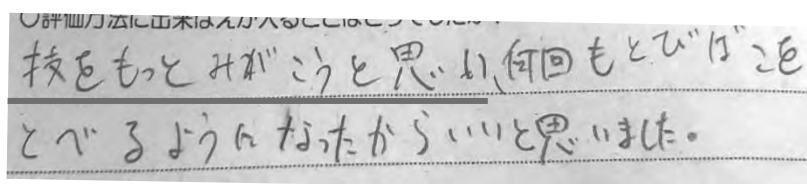 ○評価方法に出来ばえが入ることはどうでしたか？
技をもっとみがこうと思い、何回もとびばこを
とべるようになったからいいと思いました。